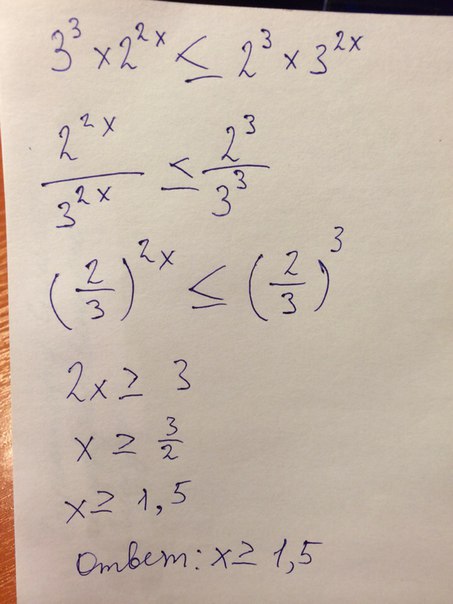 3³ × 2²ˣ ≤ 2³ × 3²ˣ
2²ˣ/3²ˣ ≤ 2³/3³
(2/3)²ˣ ≤ (2/3)³
2x ≥ 3
x ≥ 3/2
x ≥ 1,5
Ответ: x ≥ 1,5